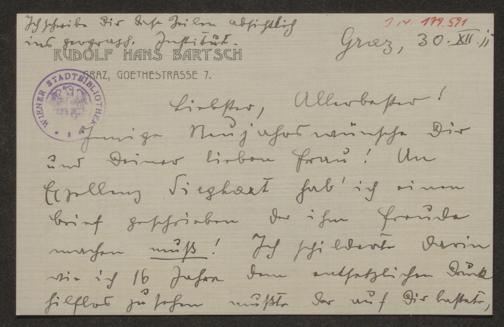 Ich schreibe Dir diese Zeilen absichtlich
ins geograph. Institut.
I.N. 179.591
RUDOLF HANS BARTSCH
GRAZ, GOETHESTRASSE 7.
Graz, 30. XII.
WIENER STADTBIBLIOTHEK
Liebster, Allerbester!
Innige Neujahrswünsche Dir
und Deiner lieben Frau! An
Exzellenz Sieghart hab' ich einen
Brief geschrieben der ihm Freude
machen muß! Ich schilderte darin
wie ich 16 Jahre dem entsetzlichen Druck
hilflos zusehen mußte der auf Dir lastete,